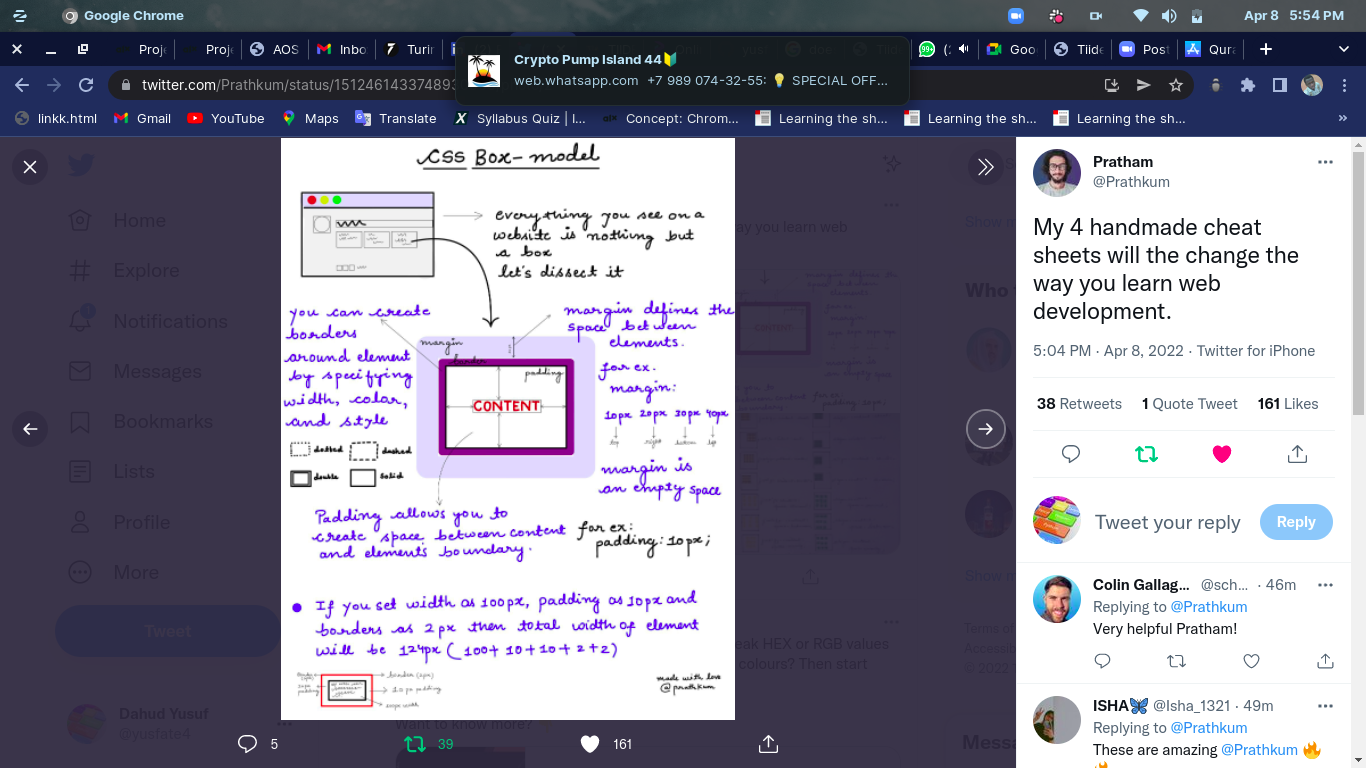 Google Chrome
Apr 8 5:54 PM
Proje
Proje
AOS
Inbo
Turin
Goo
Tiide
Post
Qura
Crypto Pump Island 44🔰
web.whatsapp.com +7 989 074-32-55: 💡 SPECIAL OFF...
twitter.com/Prathkum/status/151246143374893
linkk.html
Gmail
YouTube
Maps
Translate
Syllabus Quiz | I...
Concept: Chrom...
Learning the sh...
Learning the sh...
Learning the sh...
»
Home
Explore
Notifications
Messages
Bookmarks
Lists
Profile
More
Tweet
Dahud Yusuf
@yusfate4
CSS Box-model
everything you see on a
website is nothing but
a box
let's dissect it
you can create
borders
around element
by specifying
width, color,
and style
dotted
dashed
double
solid
margin
border
padding
CONTENT
margin defines the
space between
elements.
for ex.
margin:
10px 20px 30px 40px
top right bottom
margin is
an empty space
Padding allows you to
create space between content
and elements boundary.
for ex:
padding: 10px;
If you set width as 100px, padding as 10px and
borders as 2px then total width of element
will be 124px (100+10+10+2+2)
border (2px)
10px padding
100px width
made with love
@prathkum
way you learn web
eak HEX or RGB values
colours? Then start
Want to know more?
5
39
161
Pratham
@Prathkum
My 4 handmade cheat
sheets will the change the
way you learn web
development.
5:04 PM · Apr 8, 2022 · Twitter for iPhone
38 Retweets 1 Quote Tweet 161 Likes
Tweet your reply
Reply
Colin Gallag... @sch... · 46m
Replying to @Prathkum
Very helpful Pratham!
ISHA🦋 @Isha_1321 · 49m
Replying to @Prathkum
These are amazing @Prathkum 🔥